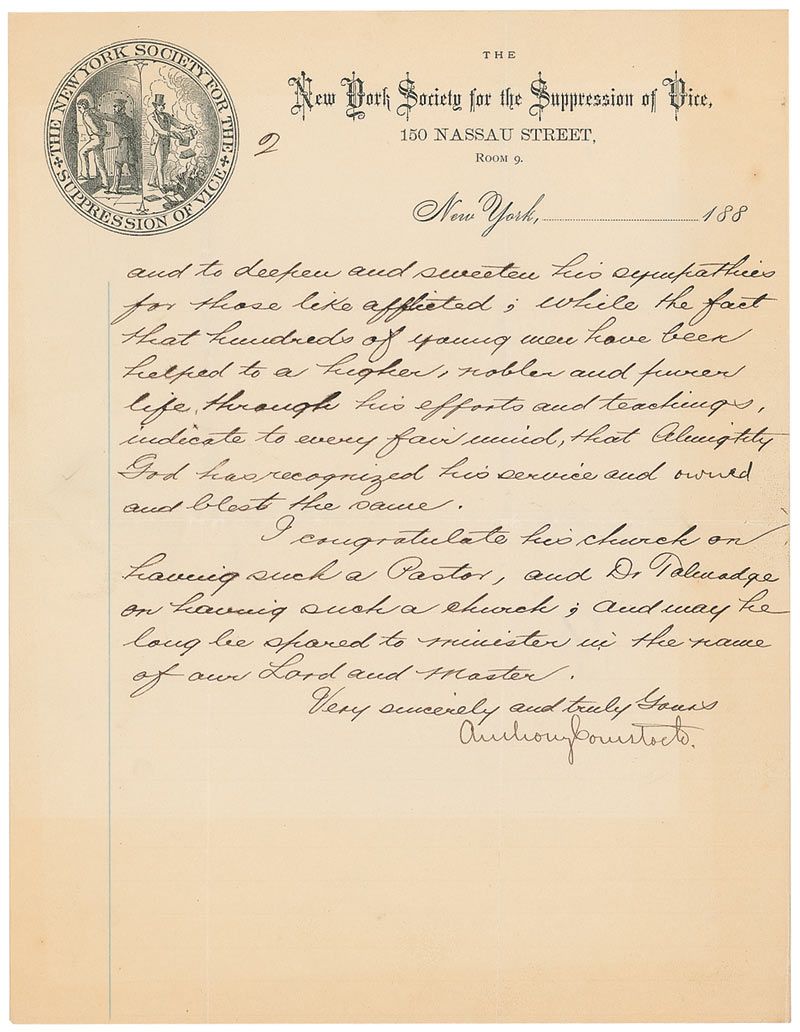 THE NEW YORK SOCIETY FOR THE
SUPPRESSION OF VICE
THE
New York Society for the Suppression of Vice,
150 NASSAU STREET,
ROOM 9.
2
New York, 188
and to deepen and sweeten his sympathies
for those like afflicted; while the fact
that hundreds of young men have been
helped to a higher, nobler and purer
life, through his efforts and teachings,
indicate to every fair mind, that Almighty
God has recognized his service and owned
and blest the same.
I congratulate his church on
having such a Pastor, and Dr Talmadge
on having such a church; and may he
long be spared to minister in the name
of our Lord and Master.
Very sincerely and truly Yours
Anthony Comstock.